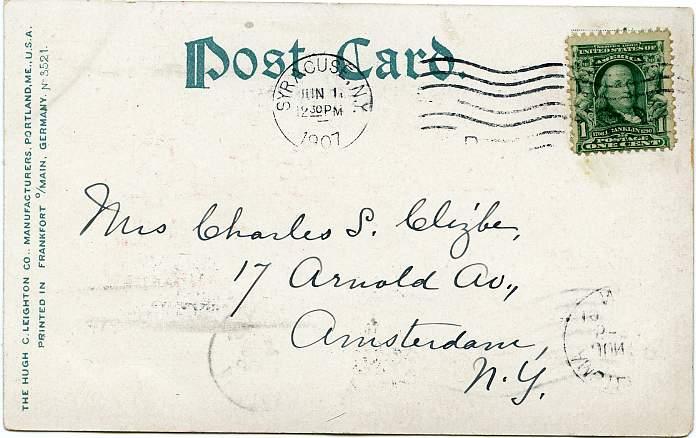 Post Card.
SYRACUSE, N.Y.
JUN 1
12 30 PM
1907
UNITED STATES OF
AMERICA
1 1
POSTAGE
ONE CENT
Mrs Charles S. Clizbe,
17 Arnold Av.,
Amsterdam,
N.Y.
THE HUGH C. LEIGHTON CO., MANUFACTURERS, PORTLAND, ME., U.S.A.
PRINTED IN FRANKFORT O/MAIN, GERMANY. No 3521.